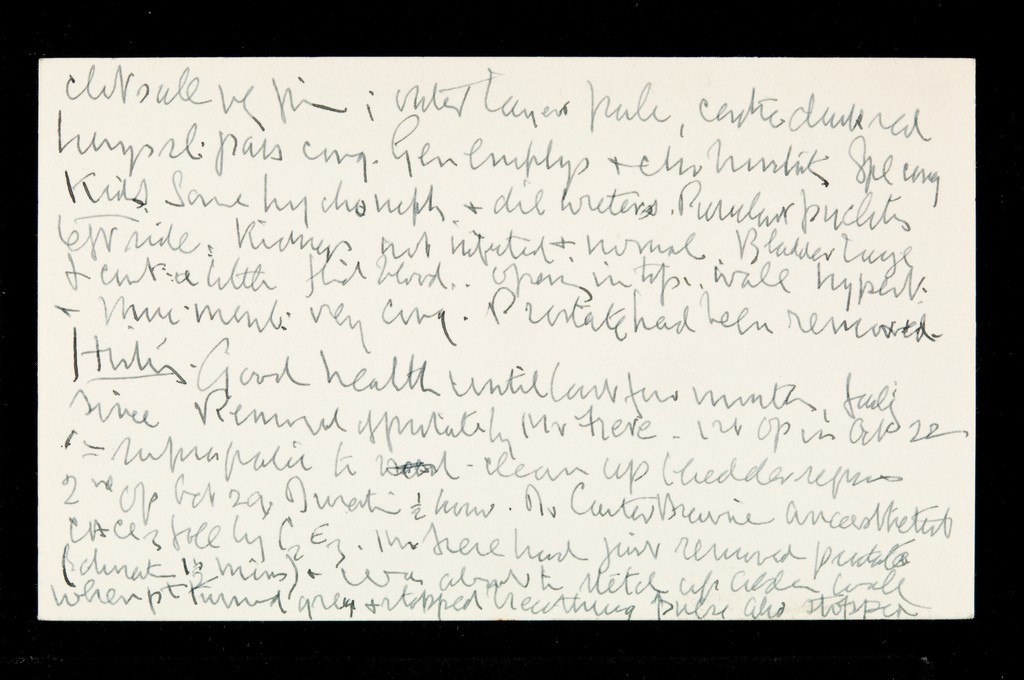 outer layers pale, centre dark red
Lungs sl: pars cong. Gen emphys + chr bronchitis Spl cong
Kids. Some hydroneph. + dil ureters. Purulent
left side. Kidneys not infected + normal. Bladder large
+ cont: a little fluid blood. opening in top. wall hypert:
+ muc: memb: very cong. Prostate had been removed
History. Good health until last few months, failing
since Removal of prostate by Mr Frere. 1st op on Oct 22
1st = suprapubic to clean up bladder
2nd op Oct 29. Duration ½ hour. Dr Carter Braine anaesthetist
foll by C2 E3. Mr Frere had just removed prostate
mins) + was about to stitch up abdom wall
when pt turned grey + stopped breathing pulse also stopped